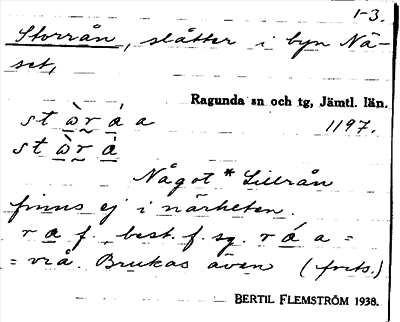 1-3.
Storrån, slåtter i byn Nä-
set,
Ragunda sn och tg, Jämtl. län.
st ὼ r á a
1197.
st ὼ r á
Något * Lillrån
finns ej i närheten.
r a f. best. f. sg. r á a =
= vrå. Brukas även (forts.)
BERTIL FLEMSTRÖM 1938.